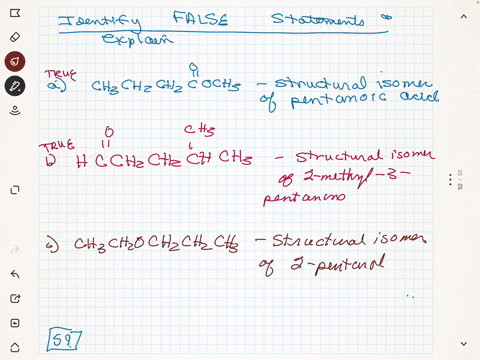 Identify FALSE Statements
Explain
TRUE
a) CH3CH2CH2COCH3 - structural isomer
O
of pentanoic acid
TRUE
O CH3
b) HCCH2CH2CHCH3 - structural isomer
of 2-methyl-3-
c) CH3CH2OCH2CH2CH3 - Structural isomer
of 2-pentanol
59.